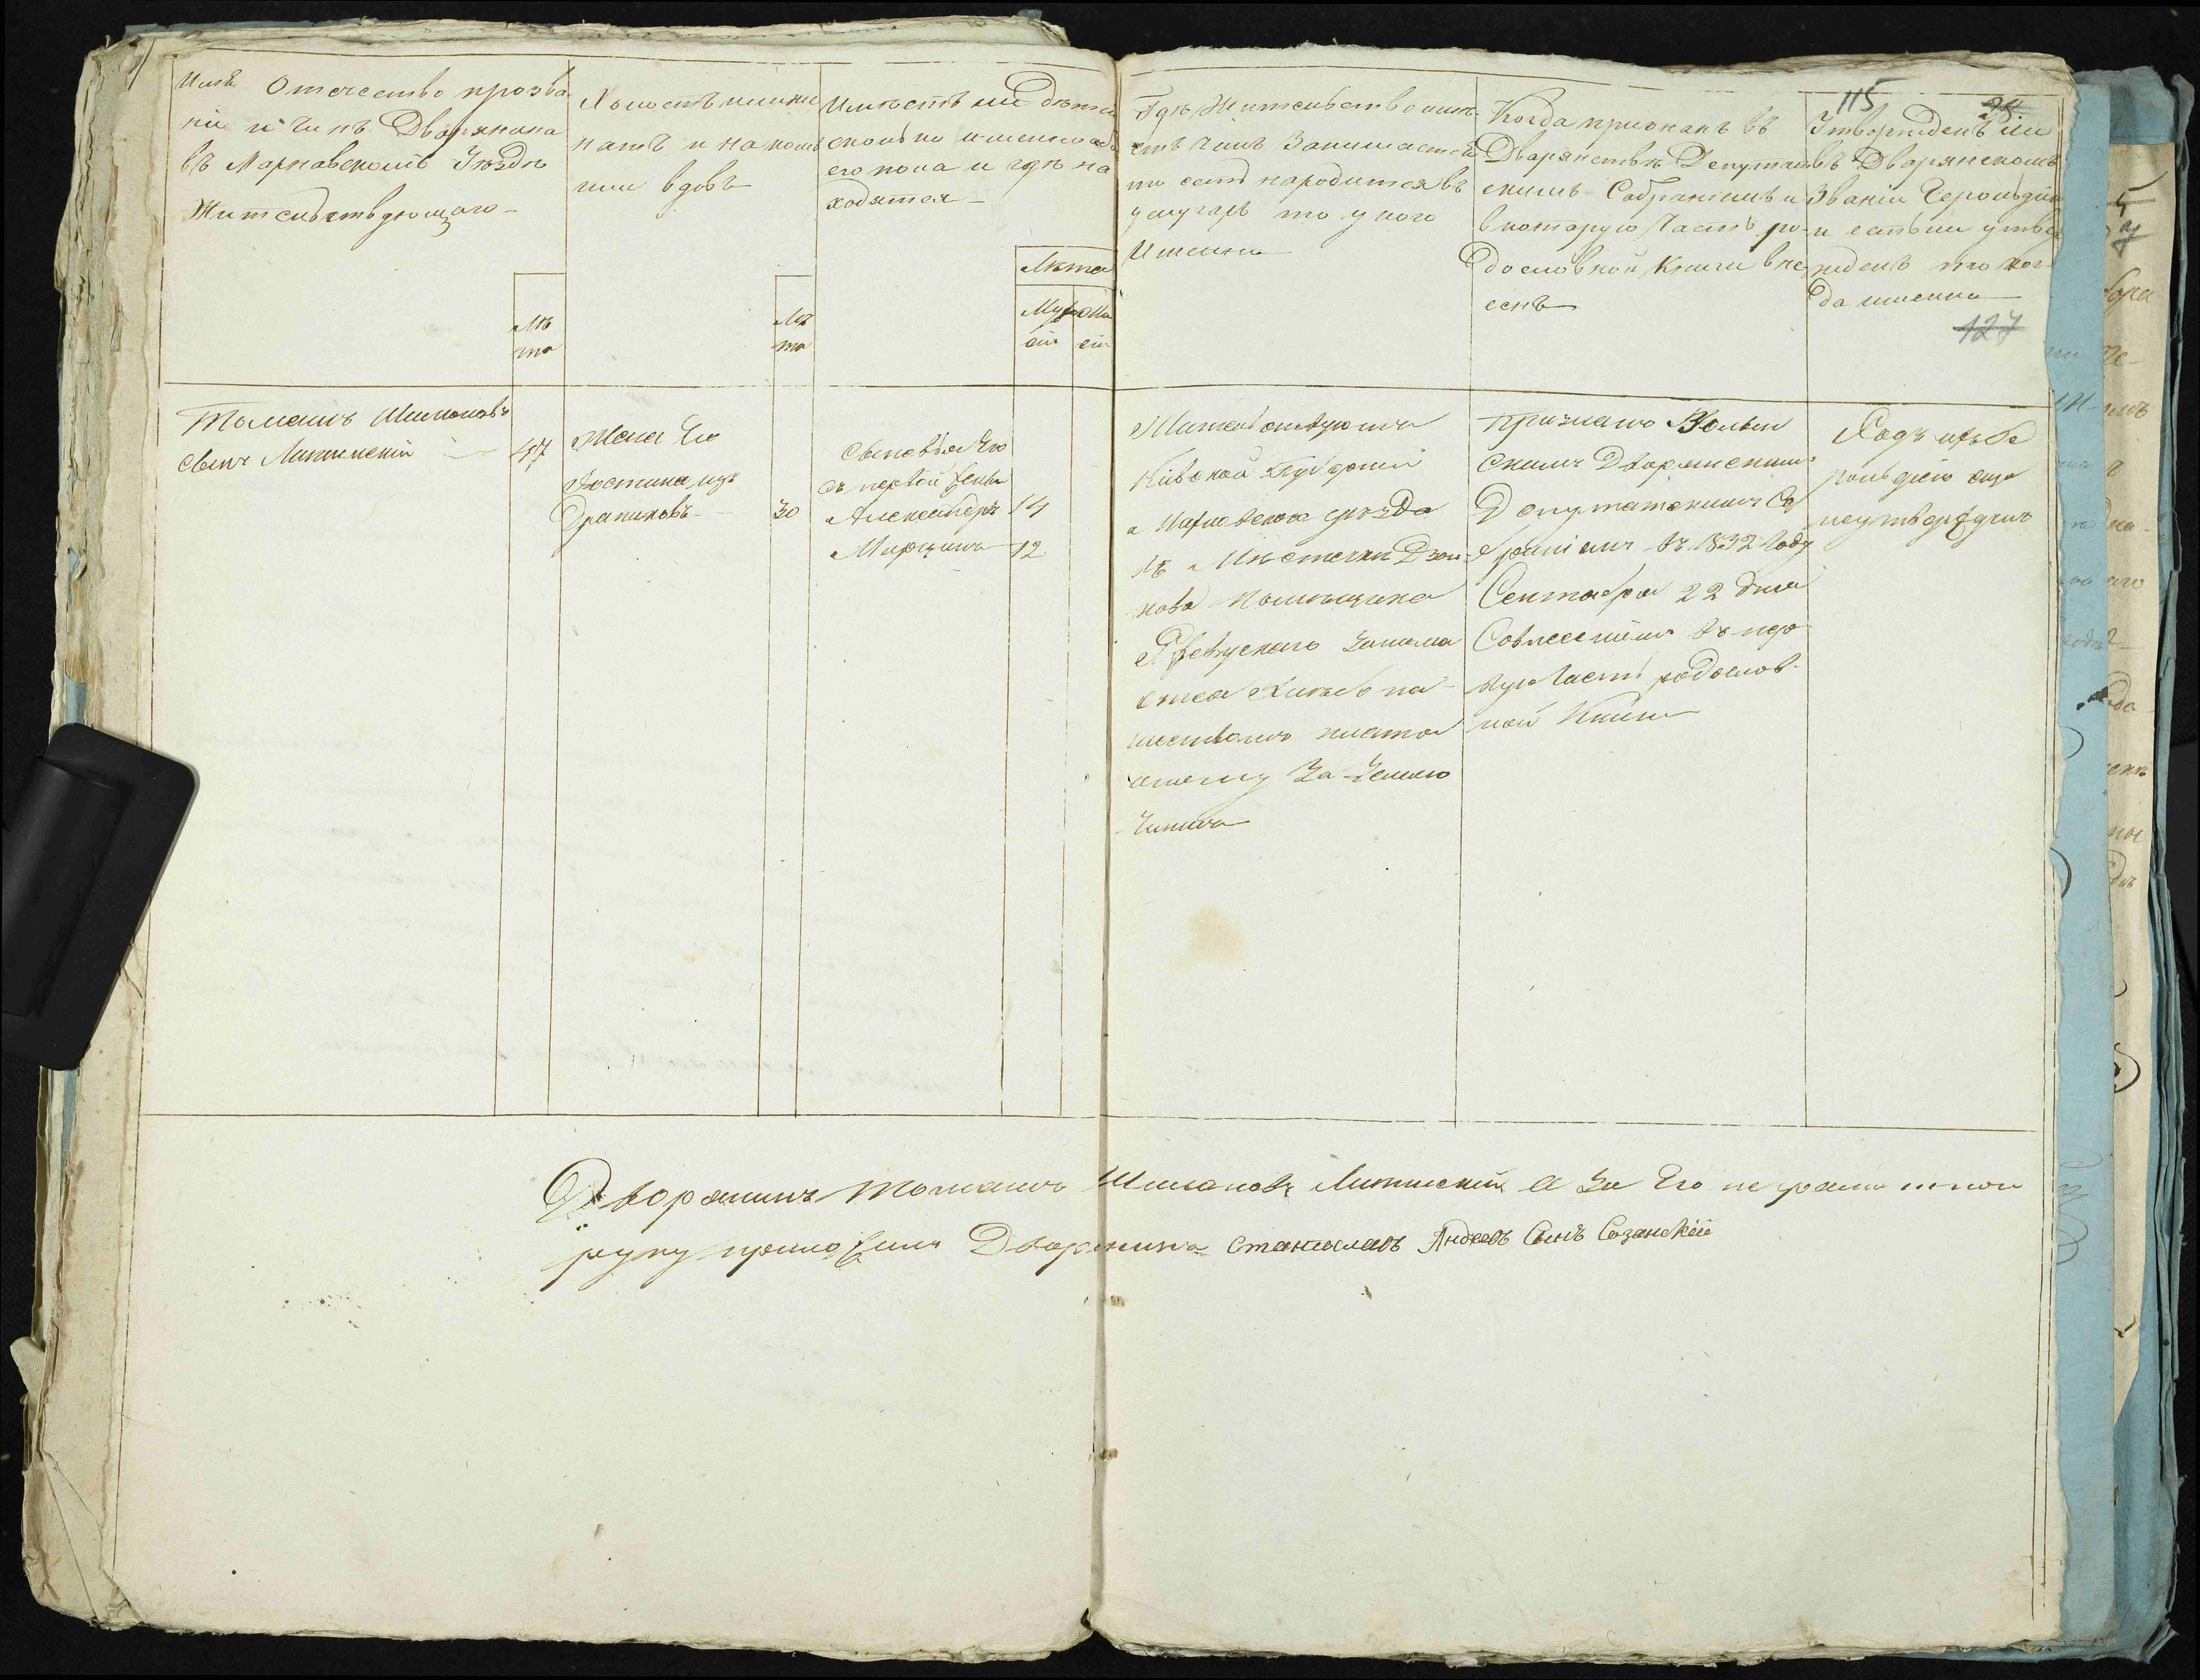 115
28.
Имя Отечество прозва
ніе и Чинъ Дворянина
въ Махновскомъ Уѣздѣ
Жительствующаго
Лѣ
та
Холостъ или же
натъ и на комъ
или вдовъ
Лѣ
та
Имѣетъ ли дѣтей
сколько и именно обо
его пола и гдѣ на
ходятся
Лѣта
Муж
ескій
Гдѣ Жительство имѣ-
етъ чемъ Занимается
то есть народится въ
услугахъ то у кого
Именно
Когда признанъ въ
Дворянствѣ Депутат
скимъ Собраніемъ и
въ которую Часть ро-
дословной Книги вне
сенъ
Утвержденъ ли
въ Дворянскомъ
Званіи Герольдіи
и естьли утвер
жденъ то ког-
да именно
127
Томашъ Шимоновъ
сынъ Литинскій 47
Жена Его
Юстина изъ
Драпиковъ 30
Сыновья Его
съ первой жены
Александръ 14
Марцинъ 12
Жительствуюча
Кіевской Губерніи
Махновскаго уѣзда
въ Мѣстечкѣ Дзюн-
кова Помѣщика
Ржевускаго занима
ется Хлебопа-
шествомъ плата
оному За Землю
Чинша
Признанъ Волын
скимъ Дворянскимъ
Депутатскимъ Со
браніемъ въ 1832 Году
Сентября 22 дня
Совнесеніемъ въ пер
вую Часть родослов-
ной Книги
Родъ
рольдіею еще
неутвержденъ
Дворянинъ Томашъ Шимоновъ Литинскій а за Его неграмотного
руку приложилъ Дворянинъ Станиславъ Андреевъ Сынъ Созанскій